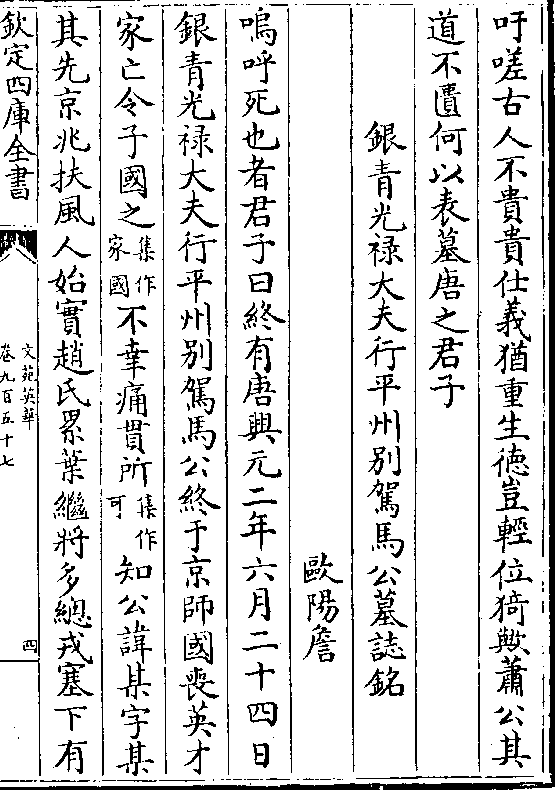 吁嗟古人不貴貴仕義猶重生徳豈輕位猗歟蕭公其
道不匱何以表墓唐之君子
銀青光禄大夫行平州别駕馬公墓誌銘
歐陽詹
嗚呼死也者君子曰終有唐興元二年六月二十四日
銀青光禄大夫行平州别駕馬公終于京師國喪英才
家亡令子國之集作家國不幸痛貫所集作可知公諱某字某
其先京兆扶風人始實趙氏累葉繼將多總戎塞下有
欽定四庫全書
文苑英華
卷九百五十七
四